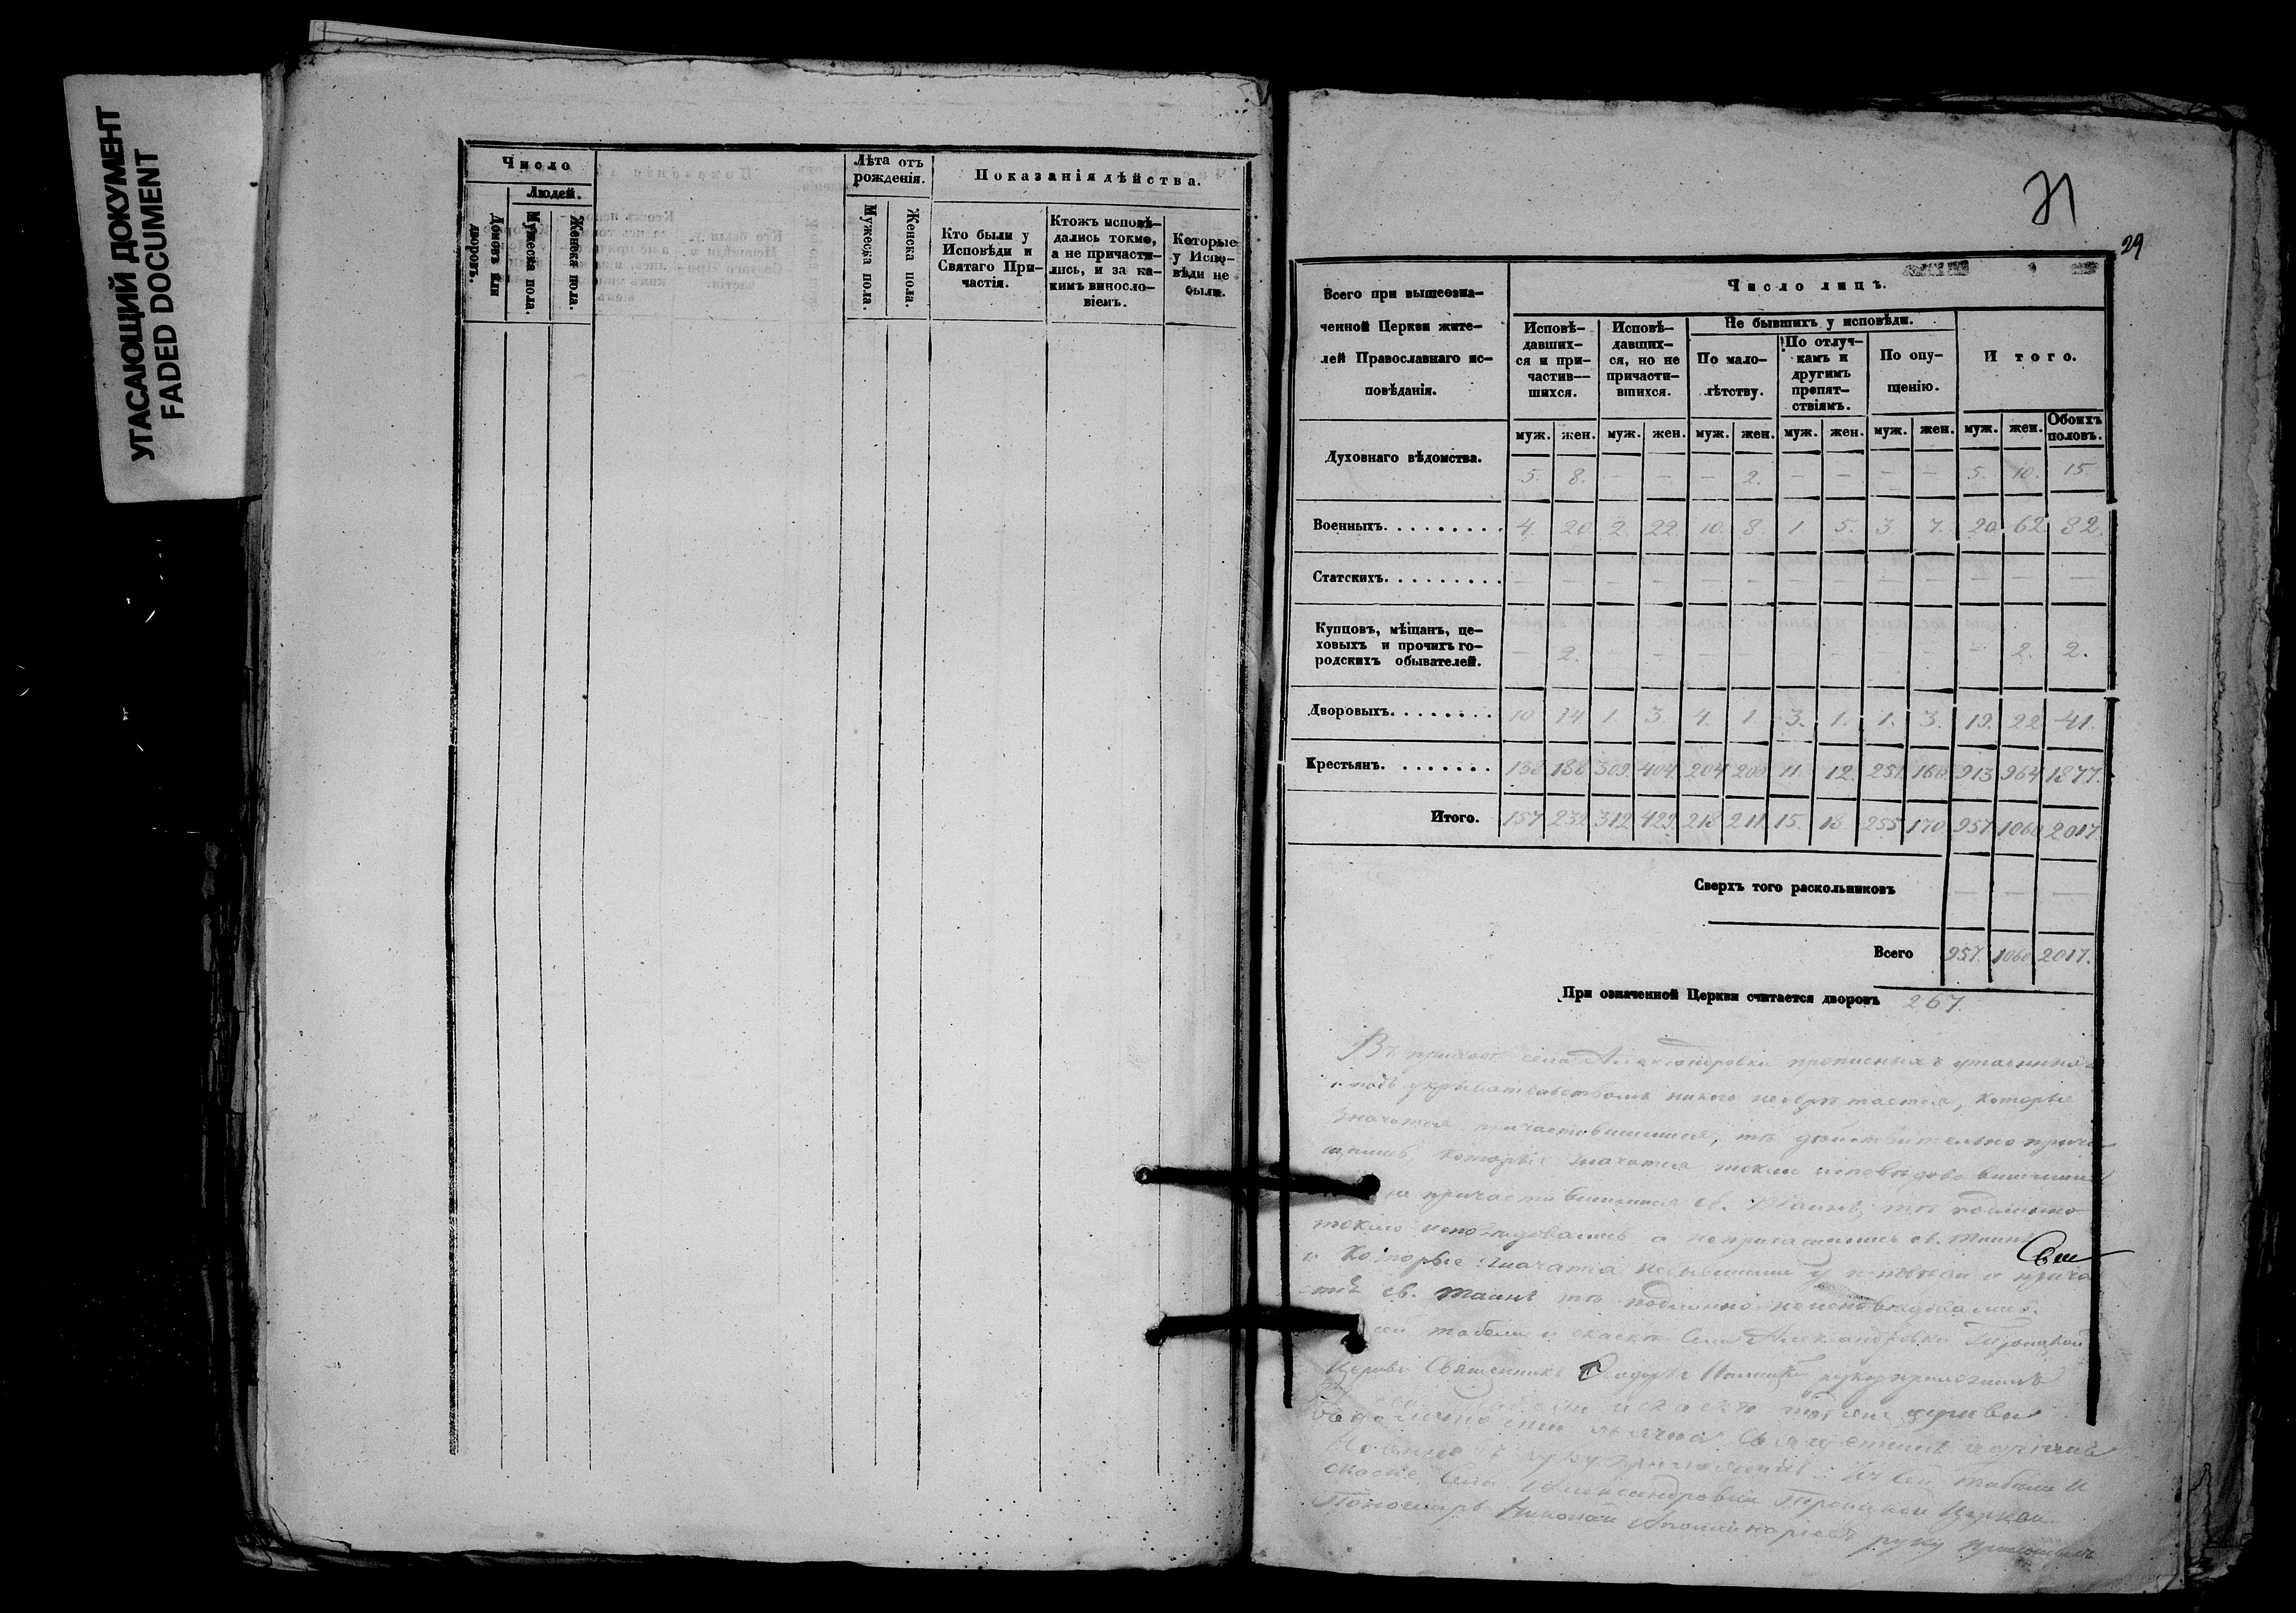 УГАСАЮЩИЙ ДОКУМЕНТ
FADED DOCUMENT
Число
Людей.
Домовъ или дворовъ.
Мужеска пола.
Женска пола.
Лѣта отъ рожденія.
Мужеска пола.
Женска пола.
Показанія дѣйства.
Кто были у
Исповѣди и
Святаго При-
частія.
Ктожъ исповѣ-
дались токмо,
а не причасти-
лись, и за ка-
кимъ винословіемъ.
Которые
у Испо-
вѣди не
были.
31
29
Всего при вышеозна-
ченной Церкви жите-
лей Православнаго ис-
повѣданія.
Число лицъ.
Исповѣ-
давших-
ся и при-
частив-
шихся.
Исповѣ-
давших-
ся, но не
причасти-
вшихся.
Не бывшихъ у исповѣди.
По мало-
лѣтству.
По отлуч-
камъ и
другимъ
препят-
ствіямъ.
По опу-
щенію.
Итого.
муж. жен. муж. жен. муж. жен. муж. жен. муж. жен. муж. жен. Обоихъ половъ.
Духовнаго вѣдомства. 5. 8. — — — 2. — — — — 5. 10. 15
Военныхъ. 4 20 2 22 10. 8. 1. 5. 3 7. 20 62 82.
Статскихъ. — — — — — — — — — — — — —
Купцовъ, мѣщанъ, це-
ховыхъ и прочихъ го-
родскихъ обывателей. — 2. — — — — — — — — — 2. 2.
Дворовыхъ. 10 14 1. 3. 4. 1. 3. 1. 1. 3. 19. 22 41.
Крестьянъ. 138 188 309. 404. 204 200 11. 12. 251. 160 913 964 1877.
Итого. 157 232 312 429. 218 211. 15. 18. 255 170 957 1060 2017
Сверхъ того раскольниковъ — — —
Всего 957. 1060 2017.
При означенной Церкви считается дворовъ 267.
Въ приходѣ села Александровки прописныхъ утаенныхъ
и подъ укрывательствомъ никого необрѣтается, которые
значатся причастившимися, тѣ дѣйствительно прича
щались, которые значатся токмо исповѣдовавшимися
не причастившимися св. Таинъ, тѣ подлинно
токмо исповѣдовались а непричащались св. Таинъ
и которые значатся небывшими у исповѣди и прича
стія св. Таинъ тѣ подлинно неисповѣдовались.
сей табели и сказкѣ Села Александровки Троицкой
Церкви Священникъ руку приложилъ
табели и сказкѣ той же церкви
руку приложилъ. Къ сей табели и
сказкѣ Села Александровки Троицкой Церкви
Пономарь Николай руку приложилъ